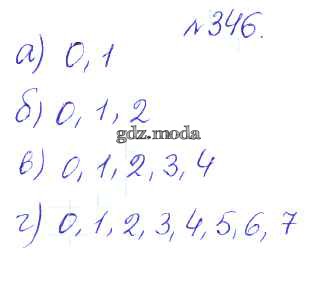 №346.
а) 0, 1
б) 0, 1, 2
gdz.moda
в) 0, 1, 2, 3, 4
г) 0, 1, 2, 3, 4, 5, 6, 7